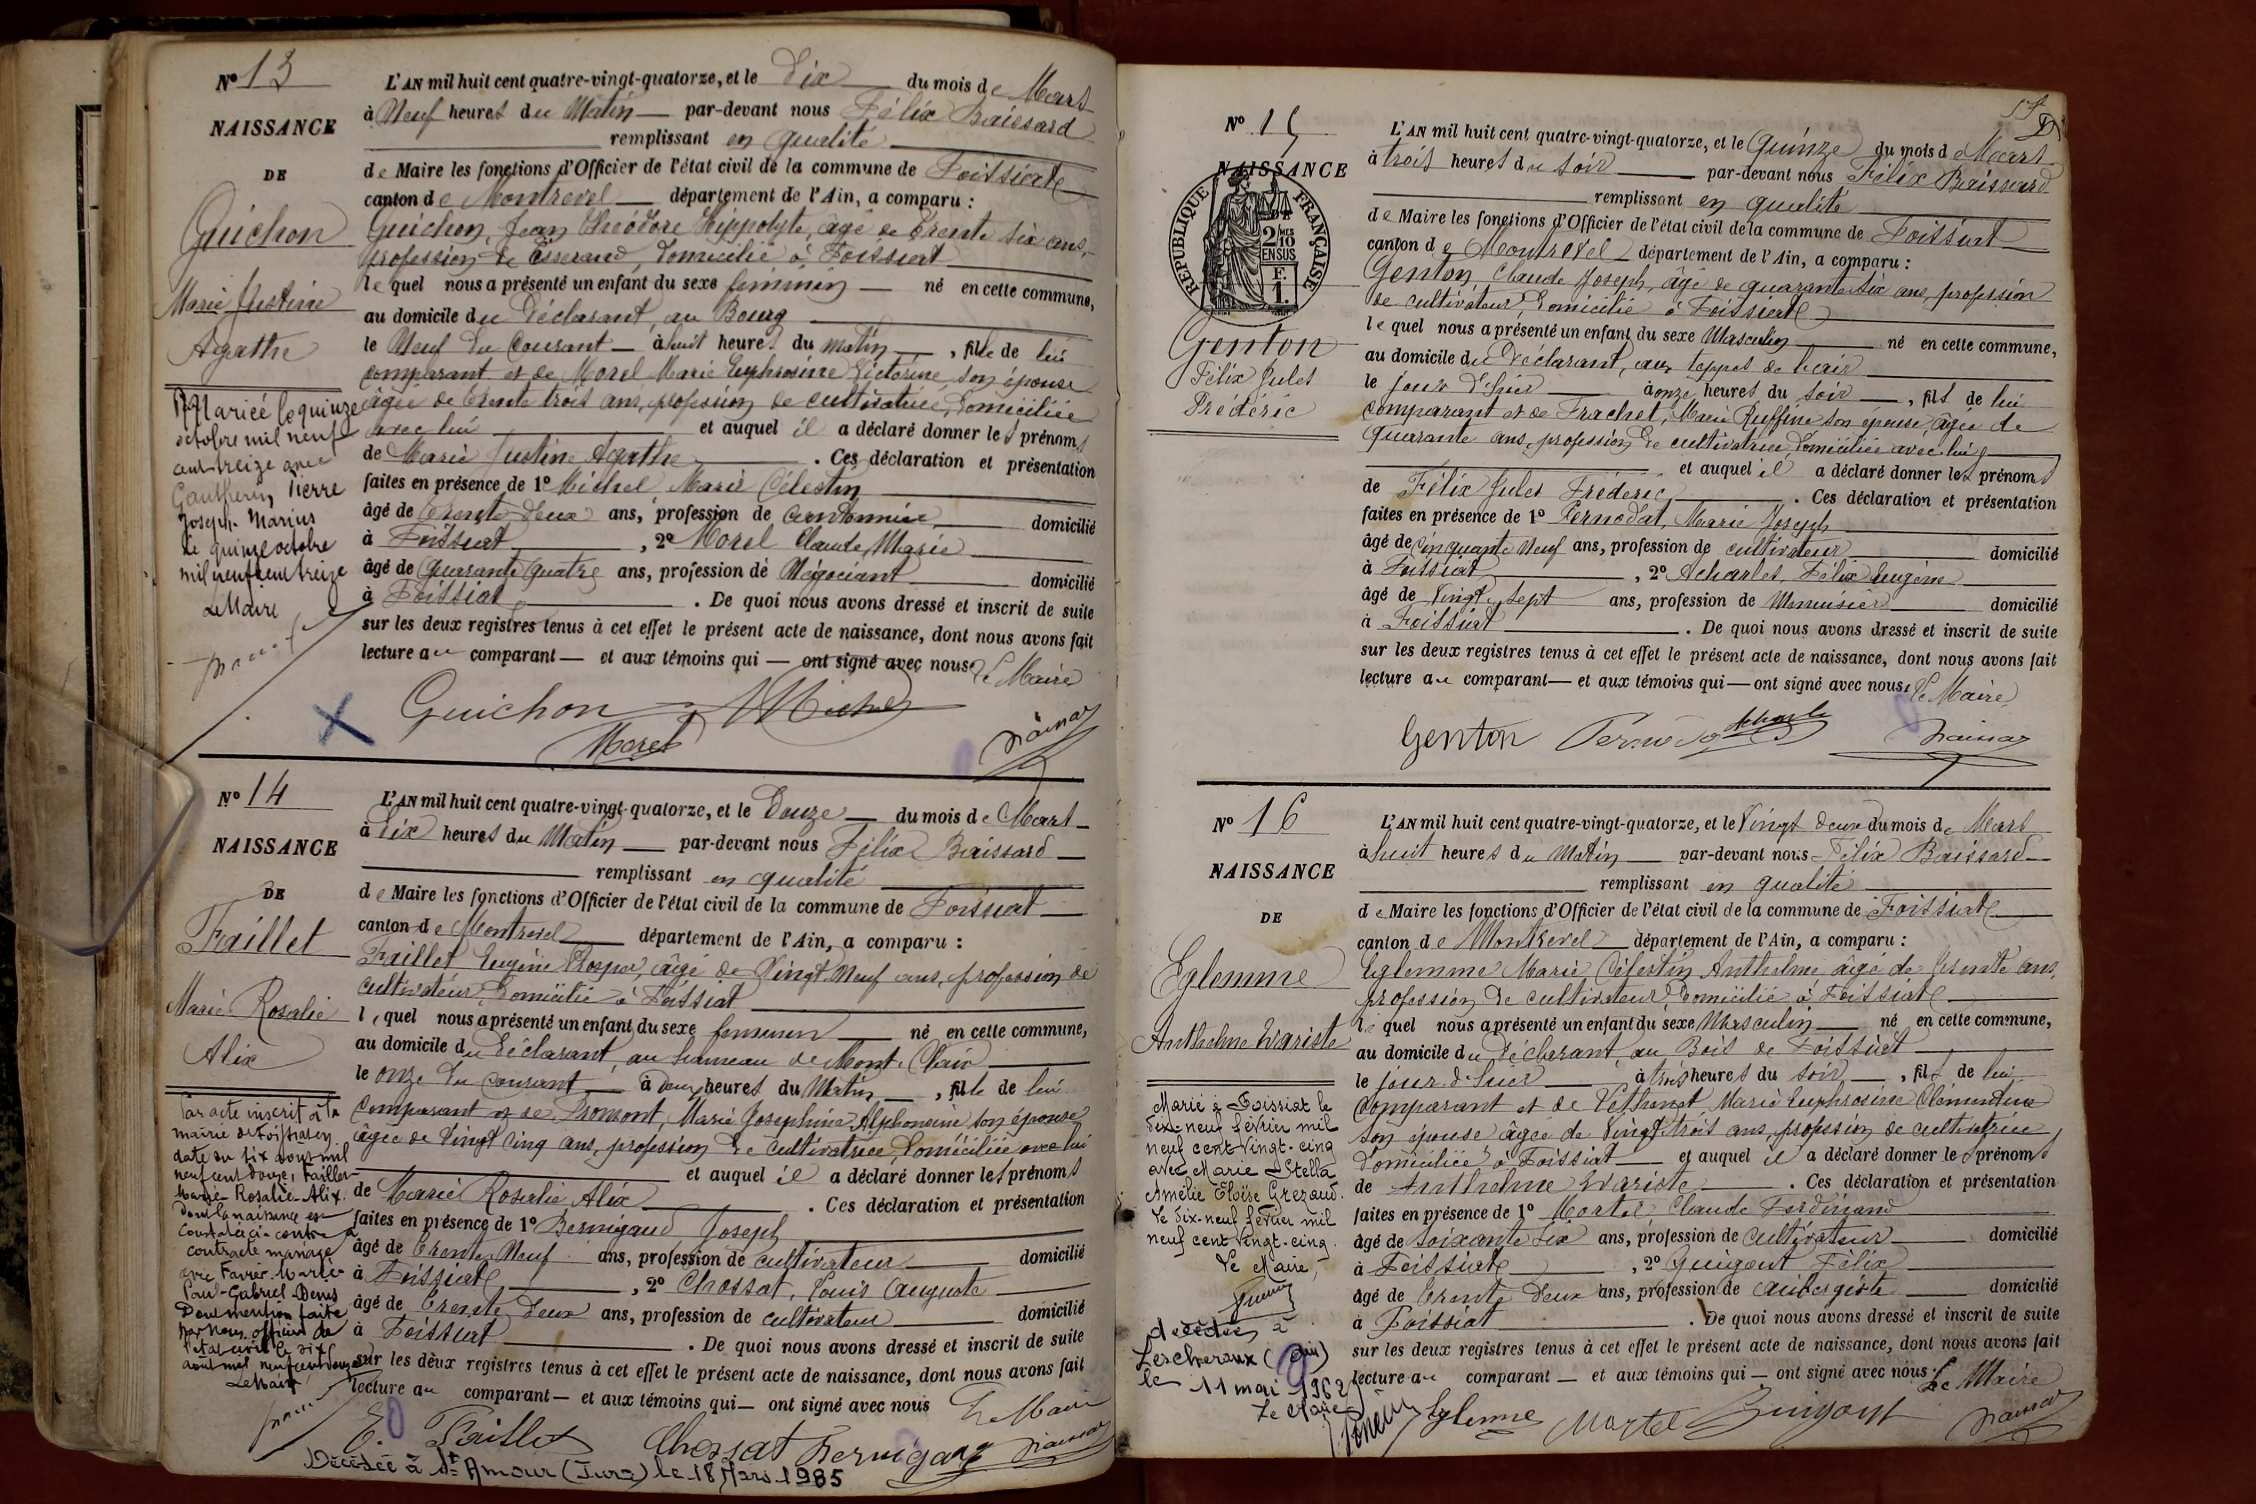 N° 13
NAISSANCE
DE
Guichon
Marie Justine
Agathe
Marié le quinze
octobre mil neuf
cent treize avec
Gauthier, Pierre
Joseph Marius
Le quinze octobre
mil neuf cent treize
Le Maire
L'AN mil huit cent quatre-vingt-quatorze, et le Dix du mois de Mars
à Neuf heures du Matin par-devant nous Félix Baissard
remplissant en qualité
de Maire les fonctions d'Officier de l'état civil de la commune de Foissiat
canton de Montrevel département de l'Ain, a comparu :
Guichon, Jean Théodore Hippolyte, âgé de trente six ans,
profession de Tisserand, domicilié à Foissiat
lequel nous a présenté un enfant du sexe féminin né en cette commune,
au domicile du Déclarant, au Bourg
le Neuf du Courant à huit heures du matin, fille de lui
comparant et de Morel Marie Euphrosine Victorine, son épouse
âgée de trente trois ans, profession de cultivatrice, domiciliée
avec lui et auquel il a déclaré donner les prénoms
de Marie Justine Agathe. Ces déclaration et présentation
faites en présence de 1° Michel Marie Célestin
âgé de trente deux ans, profession de cantonnier domicilié
à Foissiat, 2° Morel Claude Marie
âgé de quarante quatre ans, profession de Négociant domicilié
à Foissiat. De quoi nous avons dressé et inscrit de suite
sur les deux registres tenus à cet effet le présent acte de naissance, dont nous avons fait
lecture au comparant et aux témoins qui ont signé avec nous. Le Maire
Guichon Michel
Morel
N° 14
NAISSANCE
DE
Faillet
Marie Rosalie
Alix
Par acte inscrit à la
mairie de Foissiat en
date du six août mil
neuf cent douze, Faillet
Marie-Rosalie-Alix
dont la naissance est
constatée ci-contre a
contracté mariage
avec Favier Marie
Paul-Gabriel-Denis
Dont mention faite
par nous officier de
l'état civil le six
août mil neuf cent douze
Le Maire
L'AN mil huit cent quatre-vingt-quatorze, et le Douze du mois de Mars
à Dix heures du Matin par-devant nous Félix Baissard
remplissant en qualité
de Maire les fonctions d'Officier de l'état civil de la commune de Foissiat
canton de Montrevel département de l'Ain, a comparu :
Faillet Eugène Prosper, âgé de Vingt Neuf ans, profession de
cultivateur, domicilié à Foissiat
lequel nous a présenté un enfant du sexe feminin né en cette commune,
au domicile du Déclarant, au hameau de Mont-Clair
le onze du courant à deux heures du Matin, fille de lui
comparant et de Promont, Marie Josephine Alphonsine son épouse
âgée de Vingt cinq ans, profession de cultivatrice, domiciliée avec lui
et auquel il a déclaré donner les prénoms
de Marie Rosalie Alix. Ces déclaration et présentation
faites en présence de 1° Bernigaud Joseph
âgé de trente Neuf ans, profession de cultivateur domicilié
à Foissiat, 2° Chossat, Louis Auguste
âgé de trente deux ans, profession de cultivateur domicilié
à Foissiat. De quoi nous avons dressé et inscrit de suite
sur les deux registres tenus à cet effet le présent acte de naissance, dont nous avons fait
lecture au comparant et aux témoins qui ont signé avec nous Le Maire
E. Faillet Chossat Bernigaud
Décédée à St Amour (Jura) le 18 Mars 1985
N° 15
NAISSANCE
RÉPUBLIQUE FRANÇAISE
2/10 EN SUS
Genton
Félix Jules
Frédéric
L'AN mil huit cent quatre-vingt-quatorze, et le Quinze du mois de Mars
à trois heures du soir par-devant nous Félix Baissard
remplissant en qualité
de Maire les fonctions d'Officier de l'état civil de la commune de Foissiat
canton de Montrevel département de l'Ain, a comparu :
Genton, Claude Joseph, âgé de quarante six ans, profession
de cultivateur, domicilié à Foissiat
lequel nous a présenté un enfant du sexe Masculin né en cette commune,
au domicile du Déclarant, aux teppes de biair
le jour d'hier à onze heures du soir, fils de lui
comparant et de Frachet, Marie Ruffine son épouse âgée de
quarante ans, profession de cultivatrice, domiciliée avec lui
et auquel il a déclaré donner les prénoms
de Félix Jules Frédéric. Ces déclaration et présentation
faites en présence de 1° Pernodat, Marie Joseph
âgé de cinquante Neuf ans, profession de cultivateur domicilié
à Foissiat, 2° Acharles, Félix Eugène
âgé de Vingt sept ans, profession de Menuisier domicilié
à Foissiat. De quoi nous avons dressé et inscrit de suite
sur les deux registres tenus à cet effet le présent acte de naissance, dont nous avons fait
lecture au comparant et aux témoins qui ont signé avec nous. Le Maire
Genton Pernodat
N° 16
NAISSANCE
DE
Eglemme
Anthelme Evariste
Marié à Foissiat le
dix-neuf février mil
neuf cent vingt-cinq
avec Marie Stella
Amélie Eloïse Grezaud.
Le dix-neuf février mil
neuf cent vingt-cinq.
Le Maire,
décédé à
Lescheroux (Ain)
le 11 mai 1962
Le Maire
L'AN mil huit cent quatre-vingt-quatorze, et le Vingt deux du mois de Mars
à huit heures du Matin par-devant nous Félix Baissard
remplissant en qualité
de Maire les fonctions d'Officier de l'état civil de la commune de Foissiat
canton de Montrevel département de l'Ain, a comparu :
Eglemme Marie Célestin Anthelme âgé de trente ans,
profession de cultivateur domicilié à Foissiat
lequel nous a présenté un enfant du sexe Masculin né en cette commune,
au domicile du Déclarant, au Bois de Foissiat
le jour d'hier à trois heures du soir, fils de lui
comparant et de Péthenet Marie Euphrosine Clémentine
son épouse âgée de Vingt trois ans, profession de cultivatrice
domiciliée à Foissiat et auquel il a déclaré donner les prénoms
de Anthelme Evariste. Ces déclaration et présentation
faites en présence de 1° Martel Claude Ferdinand
âgé de soixante six ans, profession de cultivateur domicilié
à Foissiat, 2° Guigout Félix
âgé de trente deux ans, profession de aubergiste domicilié
à Foissiat. De quoi nous avons dressé et inscrit de suite
sur les deux registres tenus à cet effet le présent acte de naissance, dont nous avons fait
lecture au comparant et aux témoins qui ont signé avec nous. Le Maire
Eglemme Martel Guigout